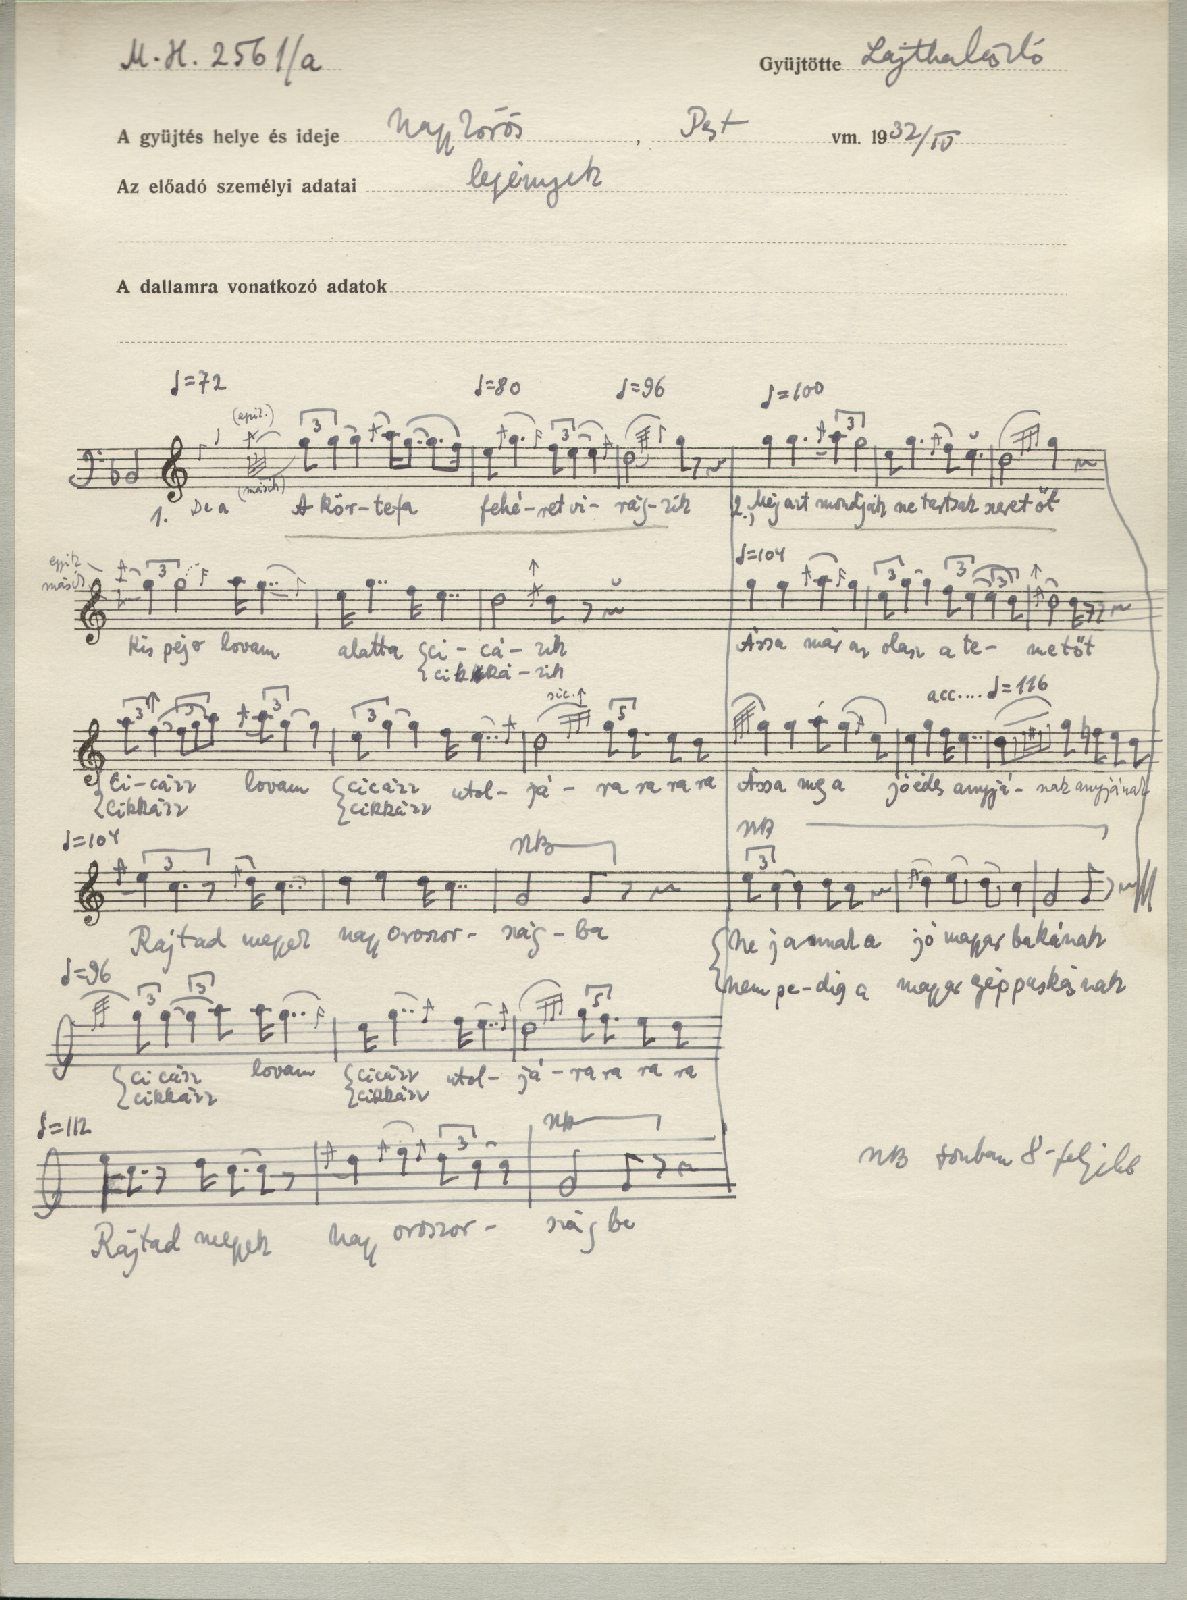 M.H. 2561/a
Gyüjtötte Lajtha László
A gyüjtés helye és ideje Nagykőrös, Pest vm. 1932/IV
Az előadó személyi adatai legények
A dallamra vonatkozó adatok
♩=72 ♩=80 ♩=96 ♩=100
(egyik)
(másik)
1. De a A kör-tefa fehé-ret vi- rág-zik 2. Még azt mondják ne tartsak szeretőt
egyik
másik
♩=104
Kis pejo lovam alatta {ci-cá-zik Ássa már az olasz a te- metőt
{cikká-zik
sic. acc.... ♩=116
{Ci-cázz lovam {cicázz utol- já- ra ra ra ra Ássa meg a jó édes anyjá- nak anyjának
{Cikkázz {cikkázz
♩=104 NB NB
Rajtad megyek nagy oroszor- szág-ba {Ne j a a jó magyar bakának
{nem pe-dig a magyar géppuskásnak
♩=96
{cicázz lovam {cicázz utol- já-ra ra ra ra
{cikkázz {cikkázz
♩=112 NB
Rajtad megyek nagy oroszor- szág ba
NB 8-